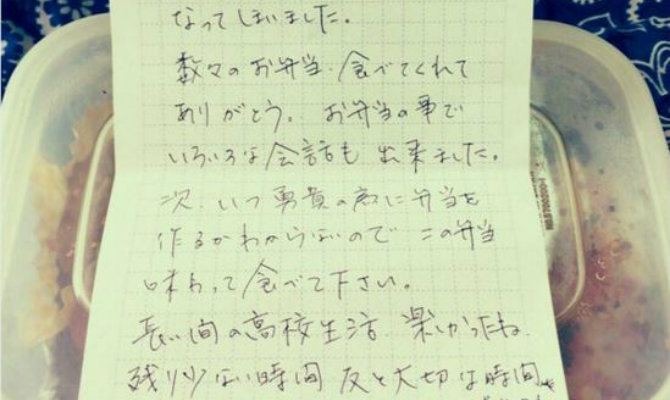 なってしまいました。
数々のお弁当、食べてくれて
ありがとう。お弁当の事で
いろいろな会話も出来ました。
次、いつ勇貴の為に弁当を
作るかわからないのでこの弁当
味わって食べて下さい。
長い間の高校生活、楽しかったね。
残り少ない時間 友と大切な時間を